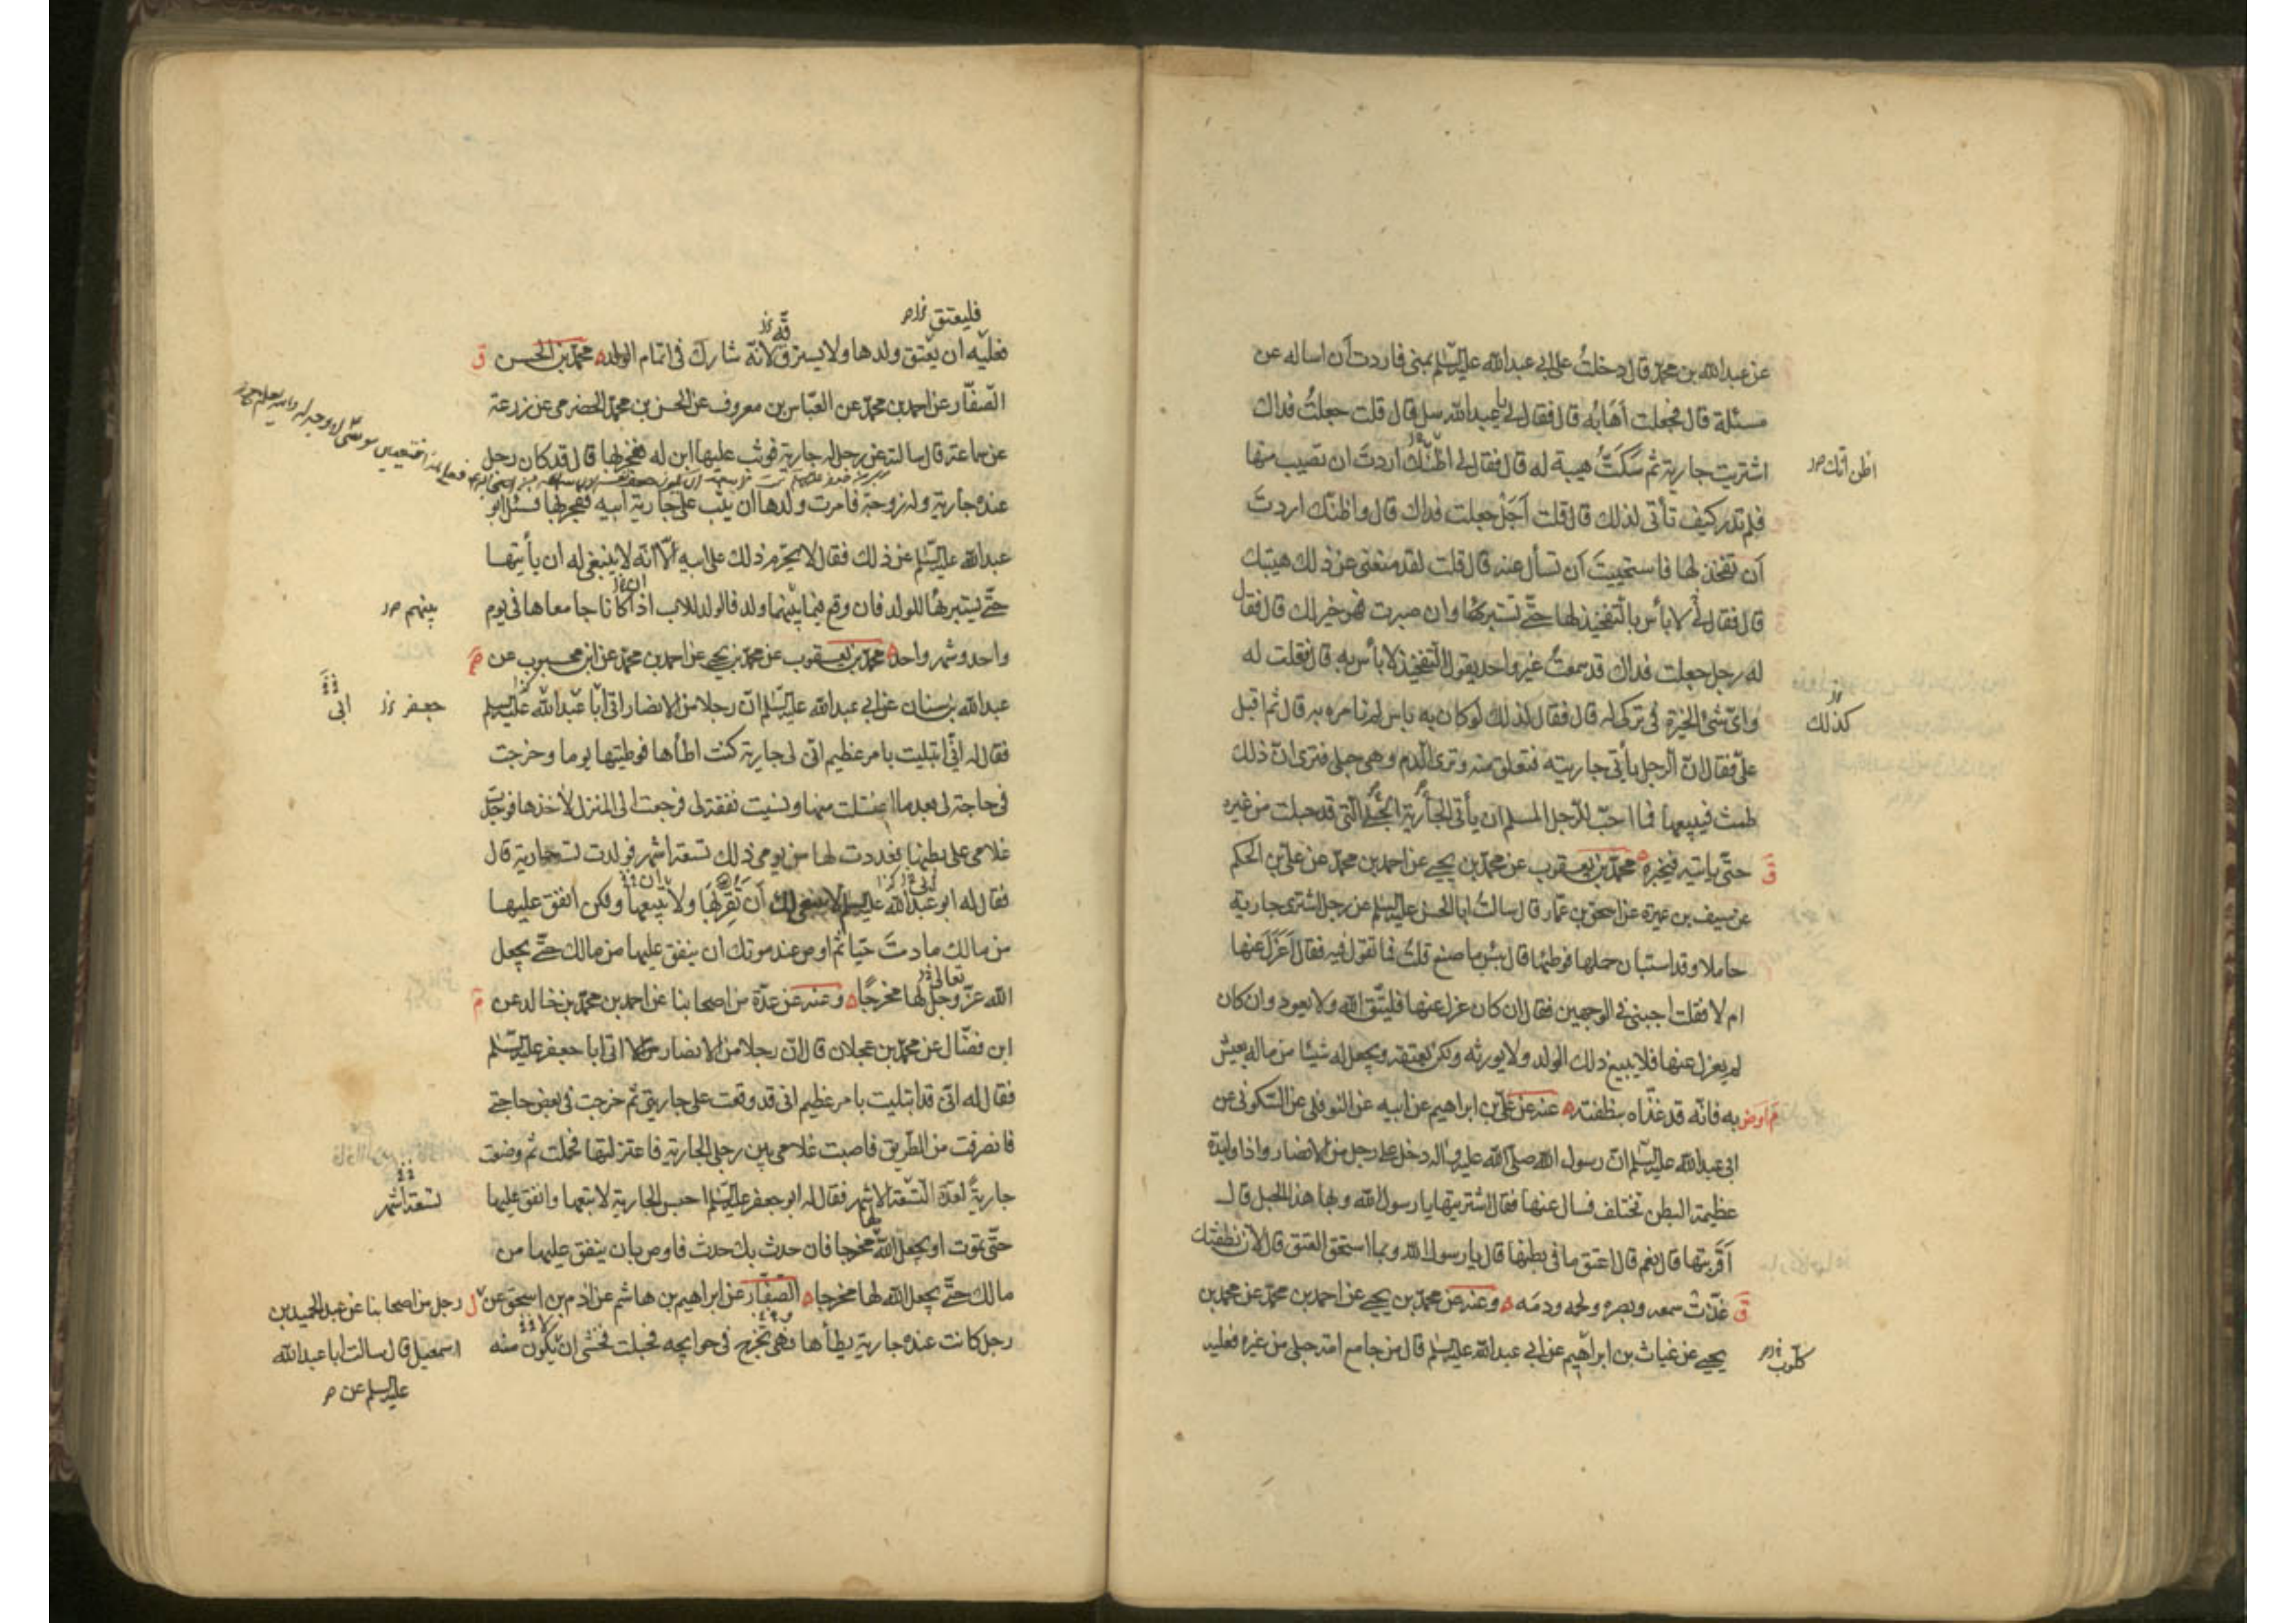 عن عبدالله بن محمد قال دخلتُ على ابي عبدالله عليه السلم بمنى فاردت اَن اساله عن
مسئلة قال فجعلت اَهَابُه قال فقال لي يا عبدالله سل قال قلت جعلتُ فداك
اشتريت جارية ثم سَكَتُّ هيبة له قال فقال لي اظنّك اردتَ ان تصيب منها
اظن انّك
فلم تدر كيف تأتى لذلك قال قلت اَجَل جعلت فداك قال واظنّك اردتَ
اَن تفخذ لها فاستحييتَ اَن تسأل عنه قال قلت لقد منعتنى عن ذلك هيبتك
قال فقال لي لا بأس بالتفخيذ لها حتّى تستبرئها وان صبرت فهو خير لك قال فقال
له رجل جعلت فداك قد سمعتُ غير واحد يقول التفخيذ لا بأس به قال فقلت له
واىّ شئ الخيرة فى تركى له قال فقال لذلك لو كان به باس لم نامره به قال ثم اقبل
كذلك
علىّ فقال انّ الرجل يأتى جاريته فتعلق منه وترى الدم وهى حبلى فترى انّ ذلك
طمث فيبيعها فما احبّ للرّجل المسلم ان يأتى الجارية الحبلى التّى قد حبلت من غيره
ق حتّى ياتيه فيخبره محمّد بن يعقوب عن محمّد بن يحيى عن احمد بن محمّد عن علىّ بن الحكم
عن سيف بن عميرة عن اسحق بن عمّار قال سالتُ ابا الحسن عليه السلم عن رجل اشترى جارية
حاملا وقد استبان حملها فوطئها قال بئس ما صنع قلتُ فما تقول فيه فقال اَعَزَلَ عنها
ام لا فقلت اجبنى فى الوجهين فقال ان كان عزل عنها فليتّق الله ولا يعود وان كان
لم يعزل عنها فلا يبيع ذلك الولد ولا يورثه ولكن يعتقه ويجعل له شيئا من ماله يعيش
به فانّه قد غذّاه بنطفته عنه عن علىّ بن ابراهيم عن ابيه عن النوفلى عن السّكونى عن
ابى عبدالله عليه السلم انّ رسول الله صلّى الله عليه واله دخل على رجل من الانصار واذا وليدة
عظيمة البطن تختلف فسال عنها فقال اشتريتها يا رسول الله وبها هذا الحبل قال
اَقَرِبتها قال نعم قال اعتق ما فى بطنها قال يا رسول الله وبما استحق العتق قال لانّ نطفتك
ق غذّت سمعه وبصره ولحمه ودمَه وعنه عن محمّد بن يحيى عن احمد بن محمّد عن محمد بن
يحيى عن غياث بن ابراهيم عن ابى عبدالله عليه السلم قال من جامع امة حبلى من غيره فعليه
فليعتق
فعليه ان يعتق ولدها ولا يسترق لانّه شارك فى اتمام الولد محمّد بن الحسن ق
الصّفّار عن احمد بن محمّد عن العبّاس بن معروف عن الحسن بن محمّد الحضرمى عن زرعة
عن سماعة قال سالته عن رجل له جارية فوثب عليها ابن له ففجر بها قال قد كان رجل
عنده جارية وله زوجة فامرت ولدها ان يثب على جارية ابيه ففجر بها فسئل ابو
عبدالله عليه السلم عن ذلك فقال لا يحرّم ذلك على ابيه الّا انّه لا ينبغى له ان يأتيها
حتّى يستبرئها للولد فان وقع فيما بينهما ولد فالولد للاب اذا كانا جامعاها فى يوم
بينهم
واحد وشهر واحد محمّد بن يعقوب عن محمّد بن يحيى عن احمد بن محمّد عن ابن محبوب عن
عبدالله بن سنان عن ابى عبدالله عليه السلم انّ رجلا من الانصار اتى ابا عبدالله عليه السلم
جعفر ابى
فقال له انّى ابتليت بامر عظيم انّ لى جارية كنت اطأها فوطيتها يوما وخرجت
فى حاجة لى بعد ما اغتسلت منها ونسيت نفقة لى فرجعت الى المنزل لأخذها فوجدت
غلامى على بطنها فعددت لها من يومى ذلك تسعة اشهر فولدت جارية قال
فقال له ابو عبدالله عليه السلم لا ينبغى لك اَن تَقرِبَها ولا تبيعها ولكن انفق عليها
من مالك ما دمتَ حيّا ثم اوص عند موتك ان ينفق عليها من مالك حتّى يجعل
تعالى
الله عزّ وجلّ لها مخرجًا وعنه عن عدّة من اصحابنا عن احمد بن محمّد بن خالد عن
ابن فضّال عن محمّد بن عجلان قال انّ رجلا من الانصار اتى ابا جعفر عليه السلم
فقال له انّى قد ابتليت بامر عظيم انى قد وقعت على جاريتى ثم خرجت فى بعض حاجتى
فانصرفت من الطّريق فاصبت غلامى بين رجلى الجارية فاعتزلتها فحملت ثم وضعت
جاريةً لعدّة التّسعة الاشهر فقال له ابو جعفر عليه السلم احبس الجارية لا تبعها وانفق عليها
تسعة اشهر
حتّى تموت او يجعل الله لها مخرجا فان حدث بك حدث فاوص بان ينفق عليها من
مالك حتّى يجعل الله لها مخرجا الصّفّار عن ابراهيم بن هاشم عن ادم بن اسحق عن
رجل من اصحابنا عن عبدالحميد بن
اسمعيل قال سالت ابا عبدالله
عليه السلم عن
رجل كانت عنده جارية يطأها وهى تخرج فى حوايجه فحبلت فخشى ان يكون منه